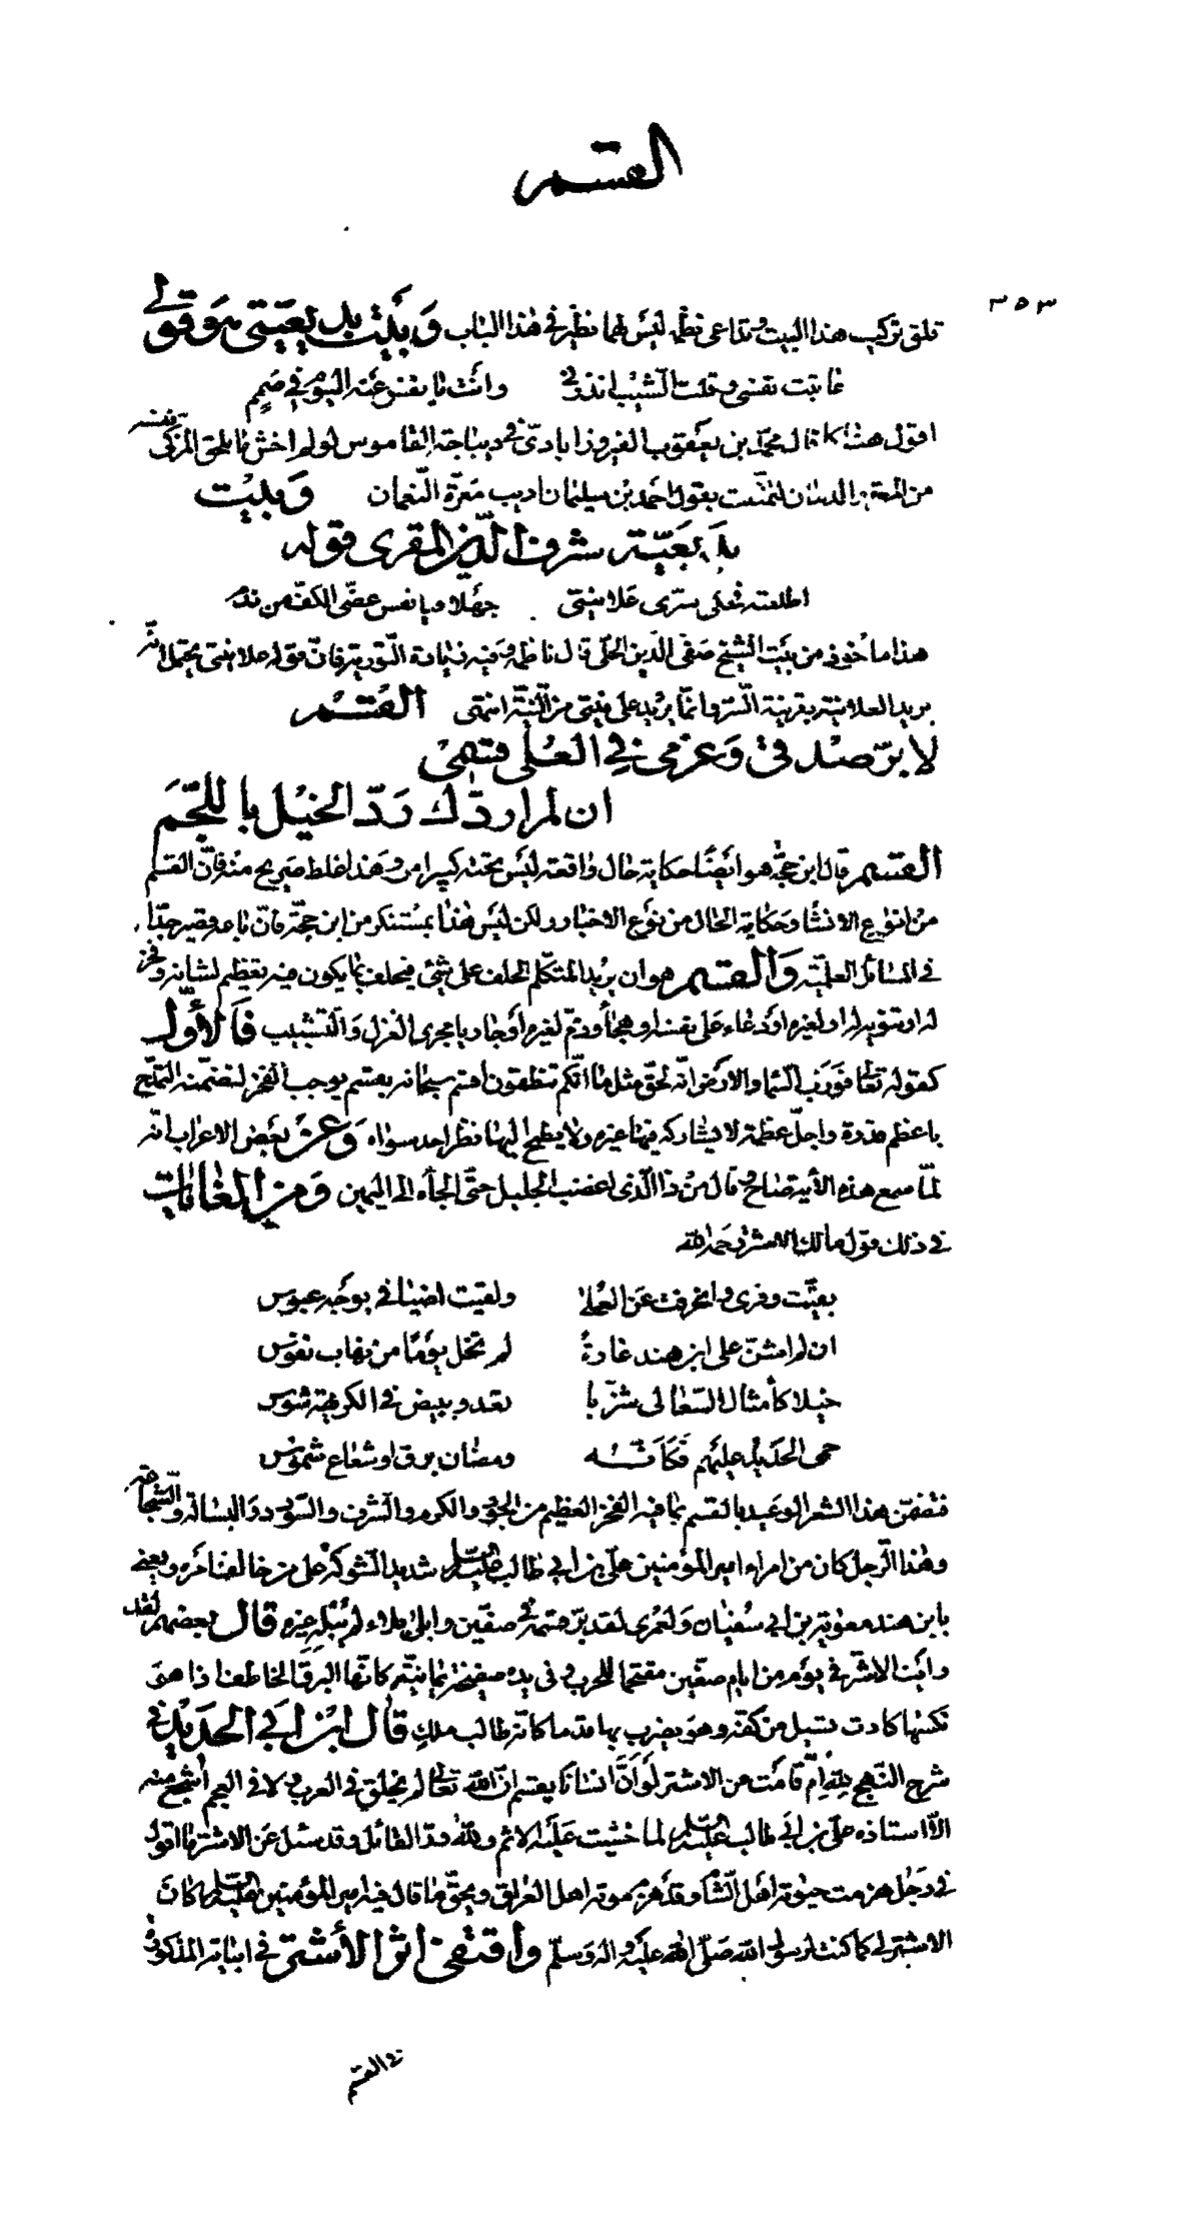 القسم
٣٥٣
قلق تركيب هذا البيت وتداعى نظمه ليس لهما نظير في هذا الباب وبيت بديعيتى هو قولى
عاتبت نفسى وقلت الشيب انذرنى وانت يا نفس عنه اليوم في صمم
اقول هنا كما قال محمد بن يعقوب الفيروزابادى في ديباجة القاموس لو لم اخش ما يلحق المزكى نفسه
من المعرة والدمان لتمثلت بقول احمد بن سليمان اديب معرة النعمان وبيت
بديعية شرف الدين المقرى قوله
اطلعته فعلى سرى علانيتى جهلا ويا نفس عضى الكف من ندم
هذا مأخوذ من بيت الشيخ صفى الدين الحلى قال ناظمه وفيه زيادة التورية فان قوله علانيتى يحتمل انه
يريد العلانية بقرينة السر وانما يريد على نيتى من النية انتهى القسم
لا بر صدقى وعزمى في العلى قسمى
ان لم اردك رد الخيل باللجم
القسم قال ابن حجة هو ايضا حكاية حال واقعة ليس تحته كبير امر وهذا غلط صريح منه فان القسم
من انواع الانشاء وحكاية الحال من نوع الاخبار ولكن ليس هذا بمستنكر من ابن حجة فان باعه قصير جدا
في المسائل العلمية والقسم هو ان يريد المتكلم الحلف على شئ فيحلف بما يكون فيه تعظيم لشانه وفخر
له او تنويه له او لغيره او دعاء على نفسه او هجاء وذم لغيره او جاريا مجرى الغزل والتشبيب فالاول
كقوله تعالى فورب السماء والارض انه لحق مثل ما انكم تنطقون اقسم سبحانه بقسم يوجب الفخر لتضمنه التمدح
باعظم قدرة واجل عظمة لا يشاركه فيها غيره ولا يطمح اليها نظر احد سواه وعن بعض الاعراب انه
لما سمع هذه الأية صاح وقال من ذا الذى اغضب الجليل حتى الجأه الى اليمين ومن الغايات
في ذلك قول مالك الاشتر رحمه الله
بقيت وفرى وانحرفت عن العلى ولقيت اضيافى بوجه عبوس
ان لم اشن على ابن هند غارة لم تخل يوما من نهاب نفوس
خيلا كأمثال السعالى شزبا تعدو ببيض في الكريهة شوس
حمى الحديد عليهم فكأنه ومضان برق او شعاع شموس
فتضمن هذا الشعر الوعيد بالقسم بما فيه الفخر العظيم من الجود والكرم والشرف والسؤدد والبسالة والشجاعة
وهذا الرجل كان من امراء امير المؤمنين على بن ابى طالب عليه السلام شديد الشوكة على من خالف امره ويعنى
بابن هند معوية بن ابى سفيان ولعمرى لقد بر قسمه في صفين وابلى بلاء لم يبله غيره قال بعضهم لقد
رأيت الاشتر في يوم من ايام صفين مقتحما للحرب وفى يده صفيحة يمانية كانها البرق الخاطف اذا هو
نكسها كادت تسيل من كفه وهو يضرب بها قدما كانه طالب ملك قال ابن ابى الحديد في
شرح النهج لله ام قامت عن الاشتر لو ان انسانا يقسم ان الله تعالى لم يخلق في العرب ولا في العجم أشجع منه
الا استاذه على بن ابى طالب عليه السلام لما خشيت عليه الاثم ولله در القائل وقد سئل عن الاشتر ما اقول
في رجل هزمت حيوته اهل الشام وقد هزم موته اهل العراق وبحق ما قال فيه امير المؤمنين عليه السلام كان
الاشتر لى كما كنت لرسول الله صلى الله عليه واله وسلم واقتفى اثر الأشتر في ابياته المذكورة
في القسم